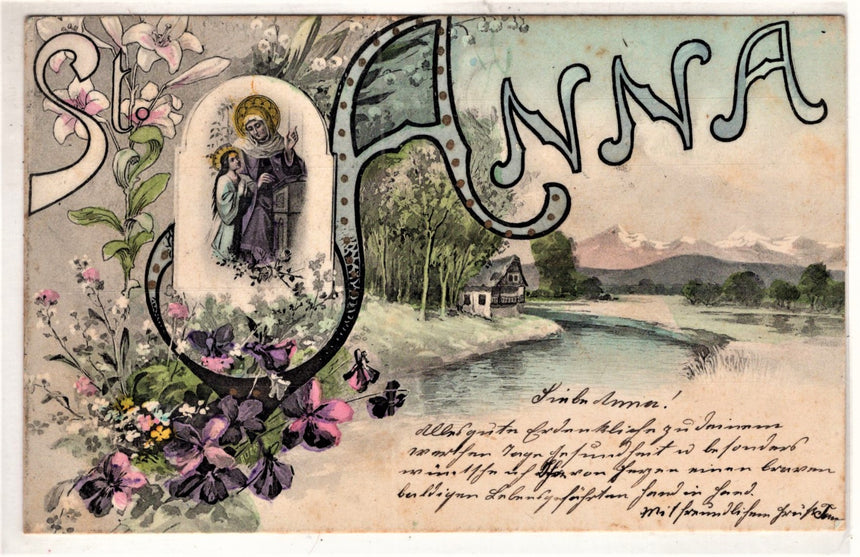 St. ANNA
Liebe Anna!
Alles gute Erdenkliche zu deinem
werthen Tage Gesundheit u besonders
wünsche ich von Herzen einen braven
baldigen Lebensgefährten Hand in Hand.
Mit freundlichem Gruß